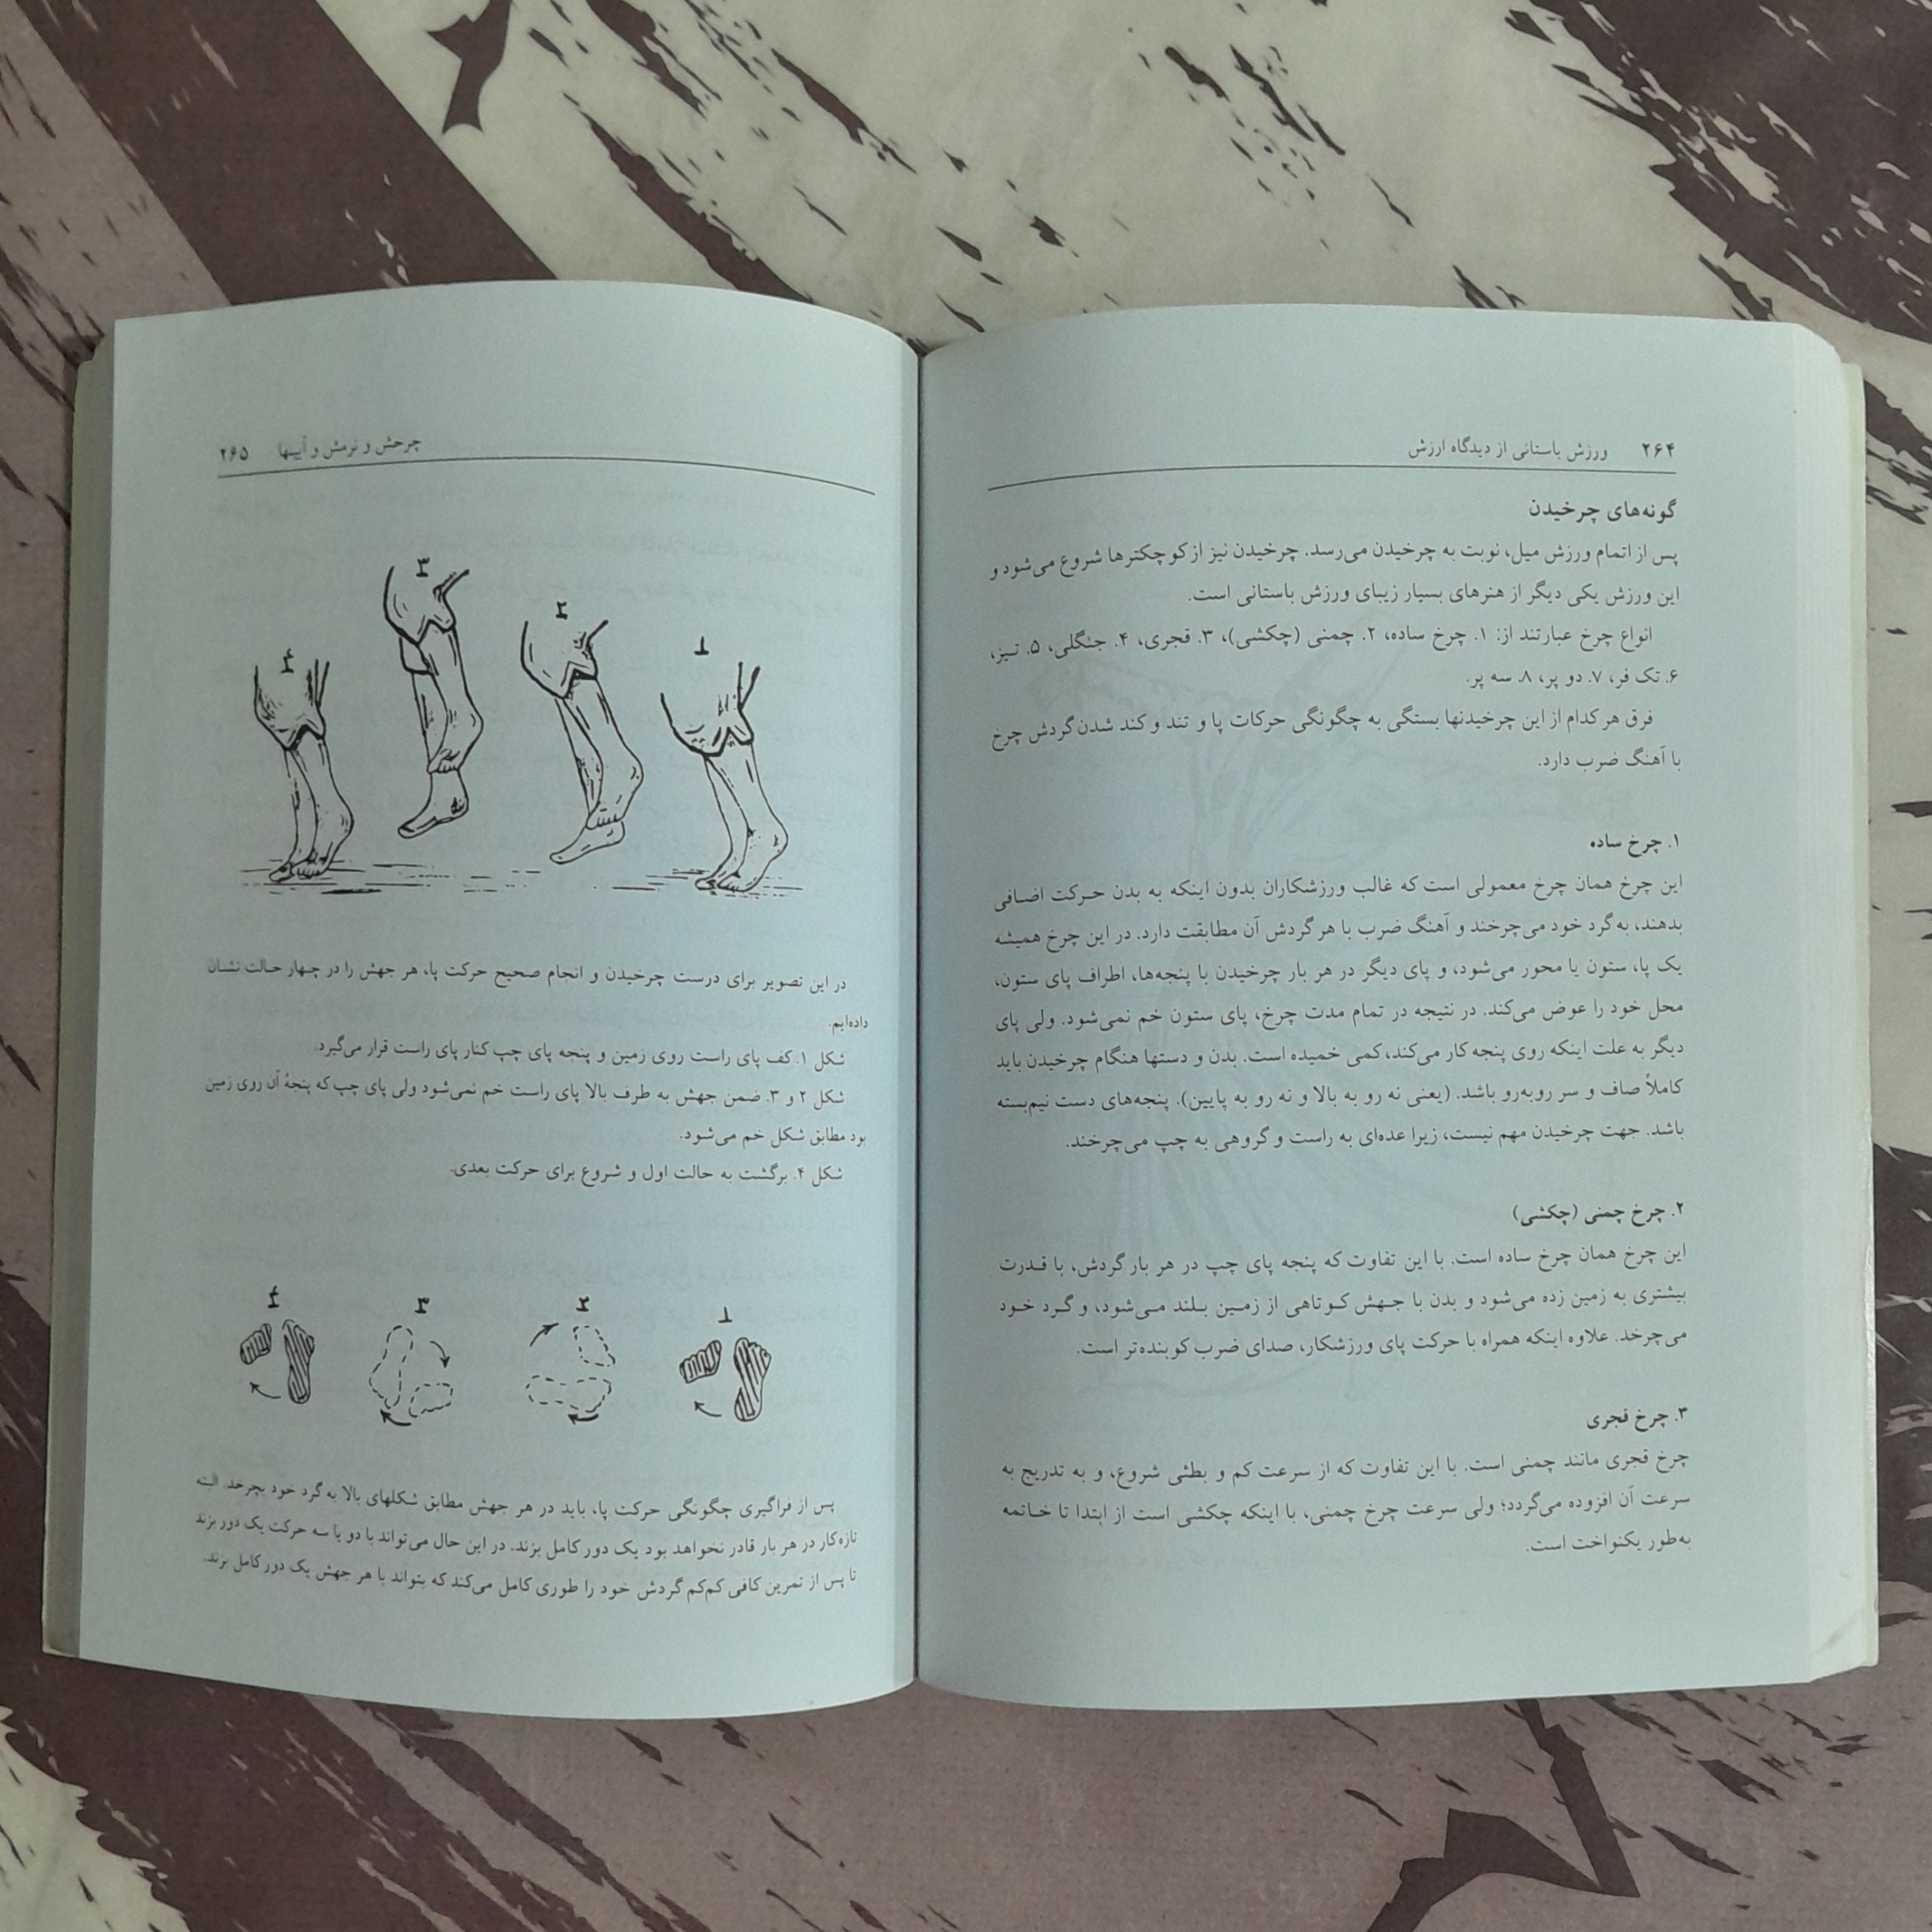 ۲۶۴ ورزش باستانی از دیدگاه ارزش
گونه‌های چرخیدن
پس از اتمام ورزش میل، نوبت به چرخیدن می‌رسد. چرخیدن نیز از کوچکترها شروع می‌شود و
این ورزش یکی دیگر از هنرهای بسیار زیبای ورزش باستانی است.
انواع چرخ عبارتند از: ۱. چرخ ساده، ۲. چمنی (چکشی)، ۳. قجری، ۴. جنگلی، ۵. تیز،
۶. تک فر، ۷. دو پر، ۸. سه پر.
فرق هر کدام از این چرخیدنها بستگی به چگونگی حرکات پا و تند و کند شدن گردش چرخ
با آهنگ ضرب دارد.
۱. چرخ ساده
این چرخ همان چرخ معمولی است که غالب ورزشکاران بدون اینکه به بدن حرکت اضافی
بدهند، به گرد خود می‌چرخند و آهنگ ضرب با هر گردش آن مطابقت دارد. در این چرخ همیشه
یک پا، ستون یا محور می‌شود، و پای دیگر در هر بار چرخیدن با پنجه‌ها، اطراف پای ستون،
محل خود را عوض می‌کند. در نتیجه در تمام مدت چرخ، پای ستون خم نمی‌شود. ولی پای
دیگر به علت اینکه روی پنجه کار می‌کند، کمی خمیده است. بدن و دستها هنگام چرخیدن باید
کاملاً صاف و سر روبه‌رو باشد. (یعنی نه رو به بالا و نه رو به پایین). پنجه‌های دست نیم‌بسته
باشد. جهت چرخیدن مهم نیست، زیرا عده‌ای به راست و گروهی به چپ می‌چرخند.
۲. چرخ چمنی (چکشی)
این چرخ همان چرخ ساده است. با این تفاوت که پنجه پای چپ در هر بار گردش، با قدرت
بیشتری به زمین زده می‌شود و بدن با جهش کوتاهی از زمین بلند می‌شود، و گرد خود
می‌چرخد. علاوه اینکه همراه با حرکت پای ورزشکار، صدای ضرب کوبنده‌تر است.
۳. چرخ قجری
چرخ قجری مانند چمنی است. با این تفاوت که از سرعت کم و بطئی شروع، و به تدریج به
سرعت آن افزوده می‌گردد؛ ولی سرعت چرخ چمنی، با اینکه چکشی است از ابتدا تا خاتمه
به‌طور یکنواخت است.
چرخش و نرمش و آیینها ۲۶۵
۱ ۲ ۳ ۴
در این تصویر برای درست چرخیدن و انجام صحیح حرکت پا، هر جهش را در چهار حالت نشان
داده‌ایم.
شکل ۱. کف پای راست روی زمین و پنجه پای چپ کنار پای راست قرار می‌گیرد.
شکل ۲ و ۳. ضمن جهش به طرف بالا پای راست خم نمی‌شود ولی پای چپ که پنجهٔ آن روی زمین
بود مطابق شکل خم می‌شود.
شکل ۴. برگشت به حالت اول و شروع برای حرکت بعدی.
۱ ۲ ۳ ۴
پس از فراگیری چگونگی حرکت پا، باید در هر جهش مطابق شکلهای بالا به گرد خود بچرخد. البته
تازه‌کار در هر بار قادر نخواهد بود یک دور کامل بزند. در این حال می‌تواند با دو یا سه حرکت یک دور بزند
تا پس از تمرین کافی کم‌کم گردش خود را طوری کامل می‌کند که بتواند با هر جهش یک دور کامل بزند.